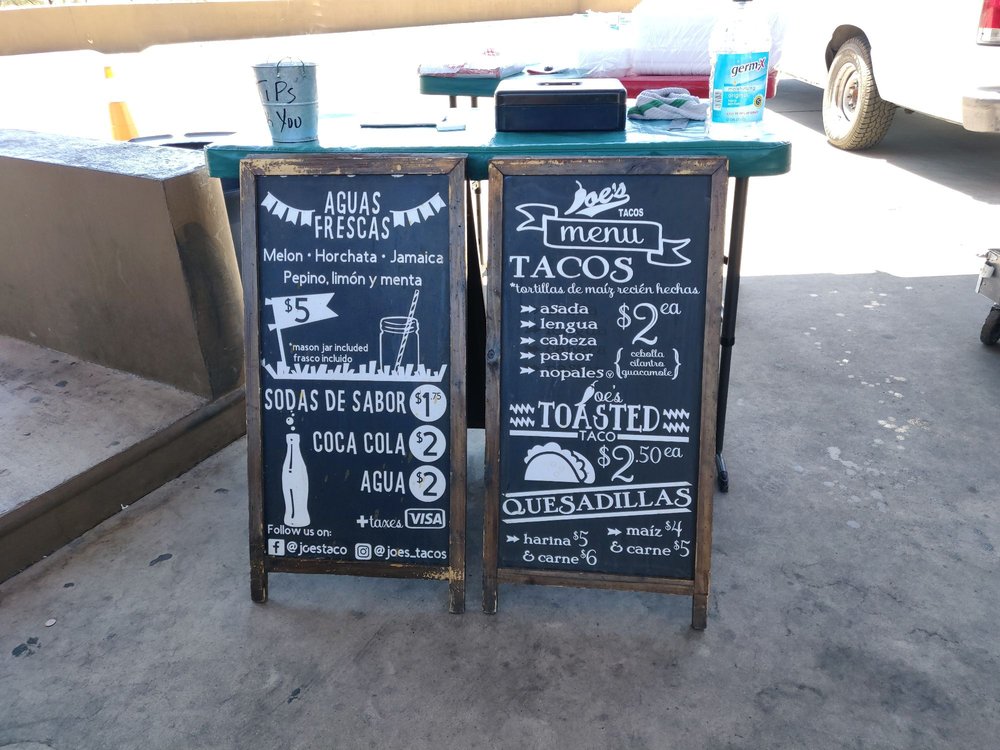 TiPs
YOU
germ-x
moisturizing
original
AGUAS
FRESCAS
Melon • Horchata • Jamaica
Pepino, limón y menta
$5
*mason jar included
frasco incluido
SODAS DE SABOR $1.75
COCA COLA $2
AGUA $2
+taxes VISA
Follow us on:
f @joestaco @joes_tacos
Joe's
TACOS
menu
TACOS
*tortillas de maíz recién hechas
asada
lengua
cabeza
pastor
nopales v
$2 ea
{cebolla
cilantro
guacamole}
Joe's
TOASTED
TACO
$2.50 ea
QUESADILLAS
harina $5
& carne $6
maíz $4
& carne $5